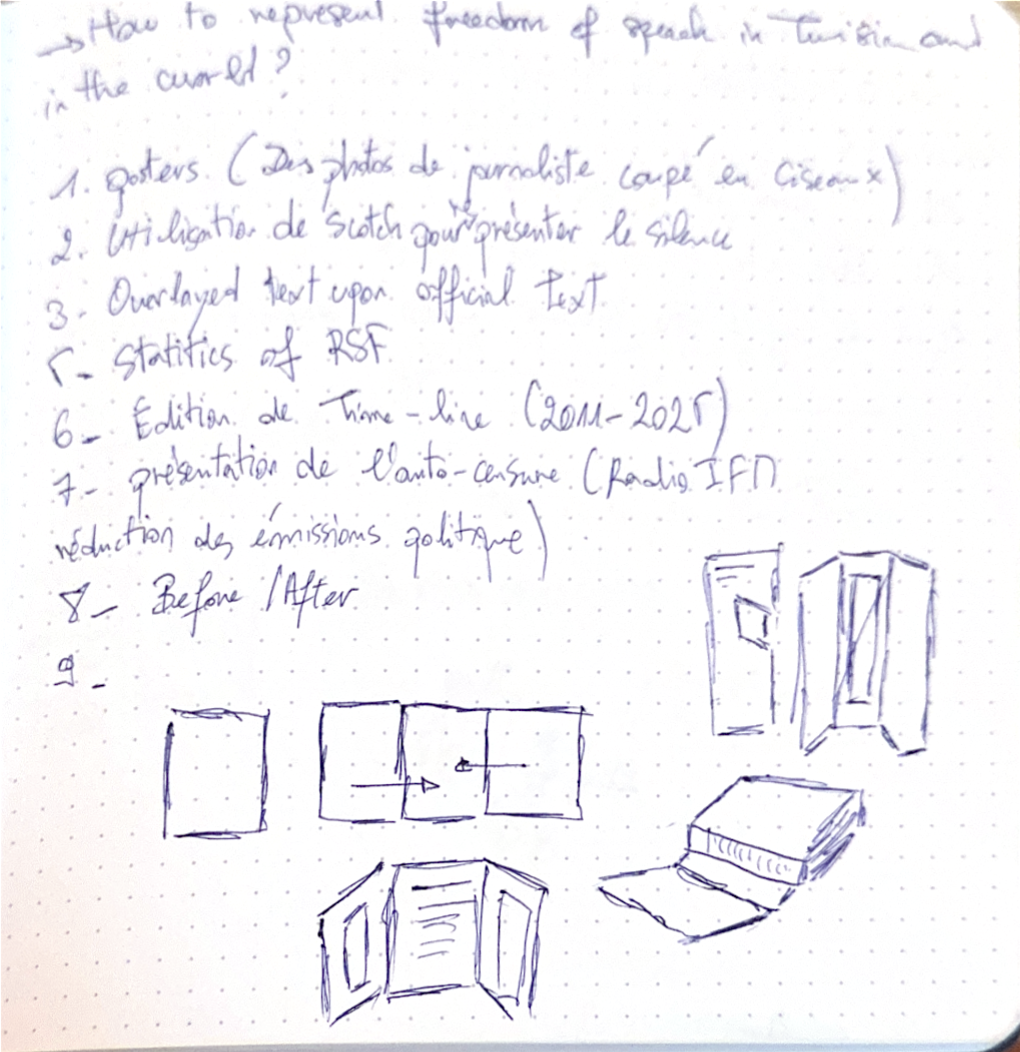 → How to represent freedom of speach in Tunisia and
in the world ?
1. posters (Des photos de journaliste coupé en ciseaux)
2. Utilisation de scotch pour représenter le silence
3. Overlayed text upon official text
5- Statitics of RSF
6- Edition de Time-line (2011-2025)
7- présentation de l'auto-censure (Radio IFM
réduction des émissions politique)
8- Before / After
9-